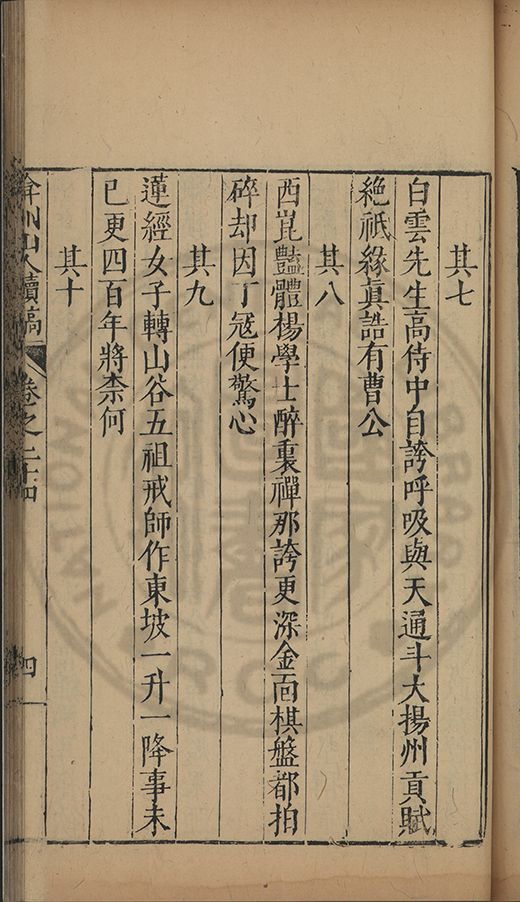 其七
白雲先生高侍中自誇呼吸與天通斗大揚州貢賦
絶祇緣眞誥有曹公
其八
西崑豔體楊學士醉裏禪那誇更深金面棋盤都拍
碎却因丁冦便驚心
其九
蓮經女子轉山谷五祖戒師作東坡一升一降事未
已更四百年將柰何
其十
弇州山人續稿 卷之二十四 四